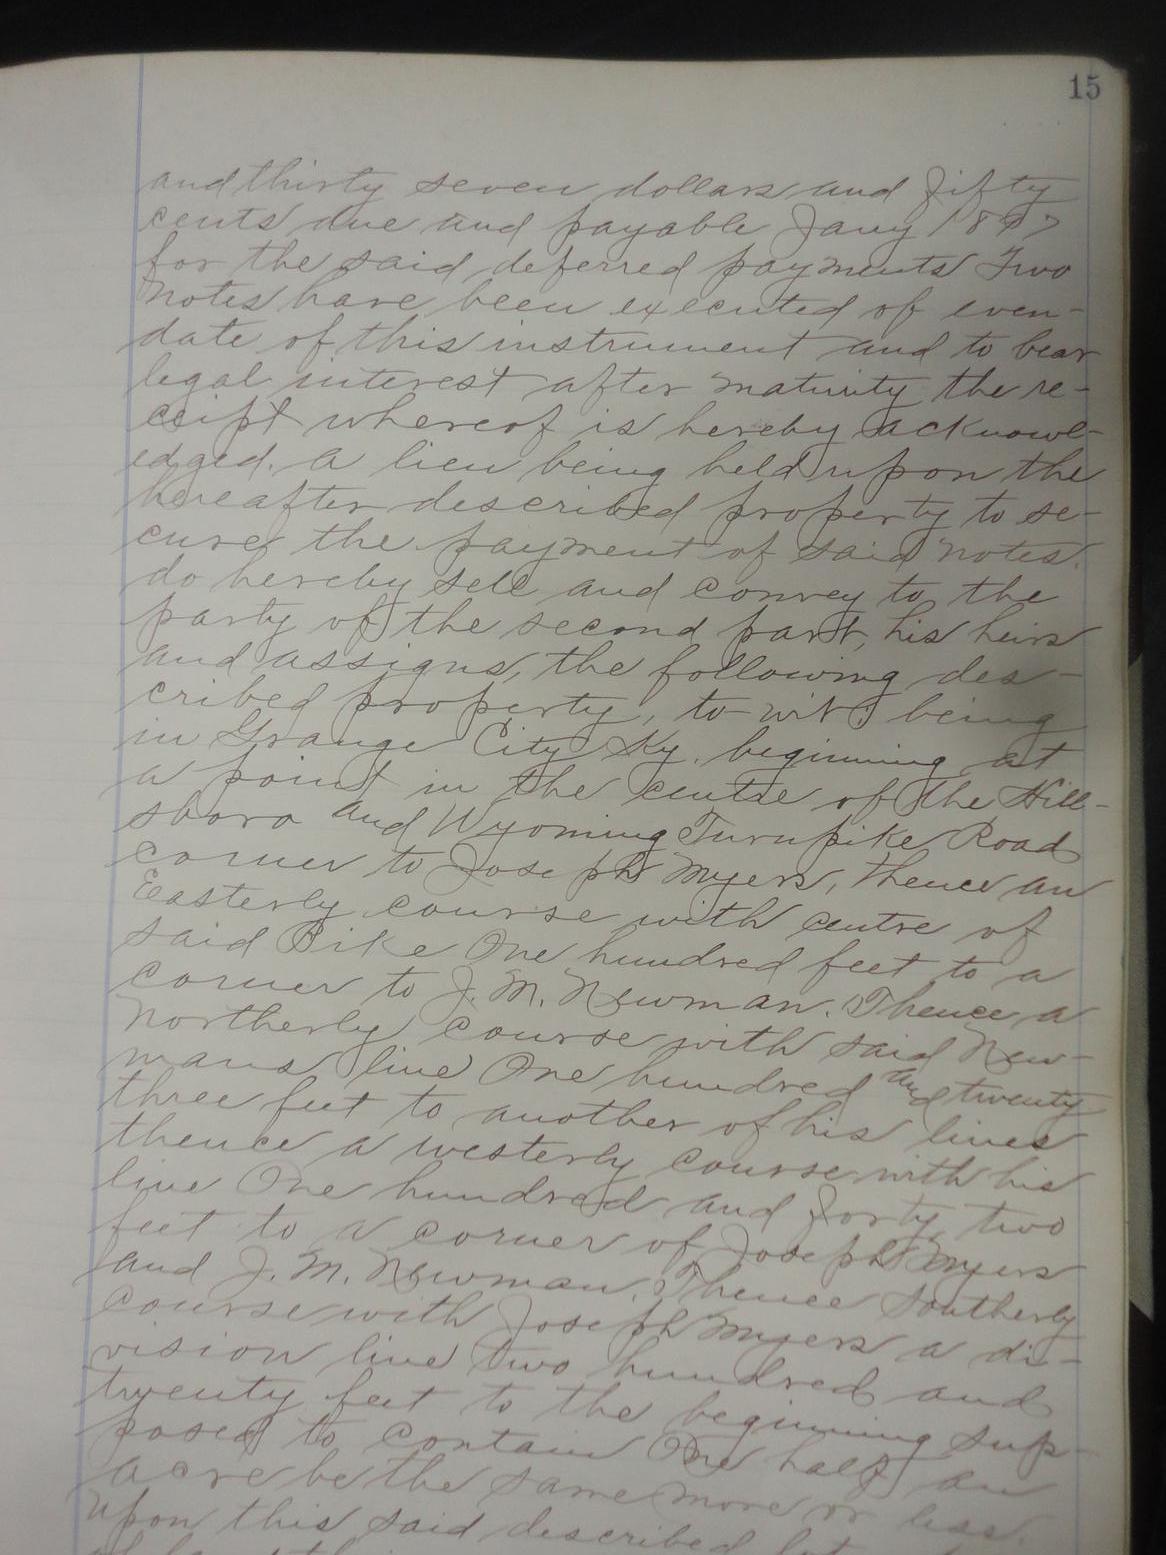 15
and thirty seven dollars and fifty
cents due and payable Jany 1897
for the said deferred payments Two
notes have been executed of even-
date of this instrument and to bear
legal interest after maturity the re-
ceipt whereof is hereby acknowl-
edged. a lien being held upon the
hereafter described property to se-
cure the payment of said notes.
do hereby sell and convey to the
party of the second part, his heirs
and assigns, the following des-
cribed property, to-wit: being
in Grange City Ky. beginning at
a point in the centre of the Hill-
sboro and Wyoming Turnpike Road
corner to Joseph Myers, thence an
Easterly course with centre of
said Pike One hundred feet to a
corner to J. M. Newman. Thence a
Northerly course with said New-
mans line One hundred and twenty
three feet to another of his lines
thence a westerly course with his
line One hundred and forty two
feet to a corner of Joseph Myers
and J. M. Newman. Thence Southerly
course with Joseph Myers a di-
vision line two hundred and
twenty feet to the beginning sup-
posed to contain One half an
acre be the same more or less.
upon this said described lot